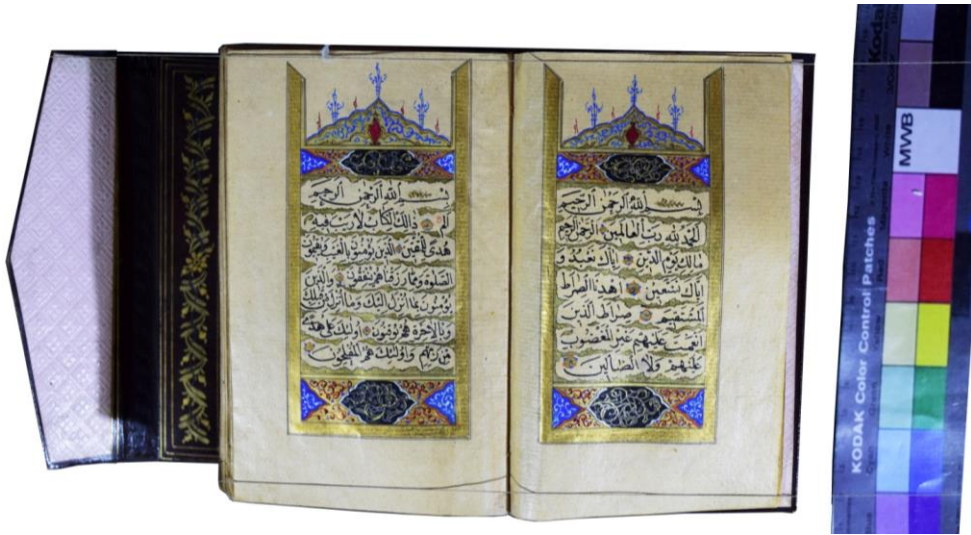 بسم الله الرحمن الرحيم
الحمد لله رب العالمين الرحمن الرحيم
مالك يوم الدين اياك نعبد و
اياك نستعين اهدنا الصراط
المستقيم صراط الذين
انعمت عليهم غير المغضوب
عليهم ولا الضالين
بسم الله الرحمن الرحيم
الم ذالك الكتاب لا ريب فيه
هدى للمتقين الذين يؤمنون بالغيب ويقيمون
الصلوة ومما رزقناهم ينفقون والذين
يؤمنون بما انزل اليك وما انزل من قبلك
وبالاخرة هم يوقنون اولئك على هدى
من ربهم واولئك هم المفلحون
KODAK Color Control Patches
Kodak
MWB